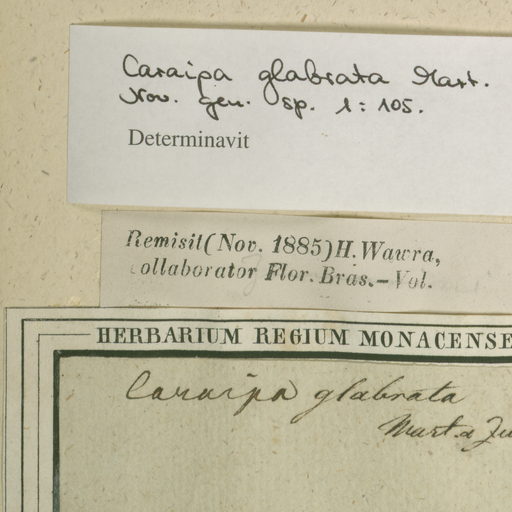 Caraipa glabrata Mart.
Nov. gen. sp. 1: 105.
Determinavit
Remisit (Nov. 1885) H. Wawra,
collaborator Flor. Bras. – Vol.
HERBARIUM REGIUM MONACENSE
Caraipa glabrata
Mart. a Zu